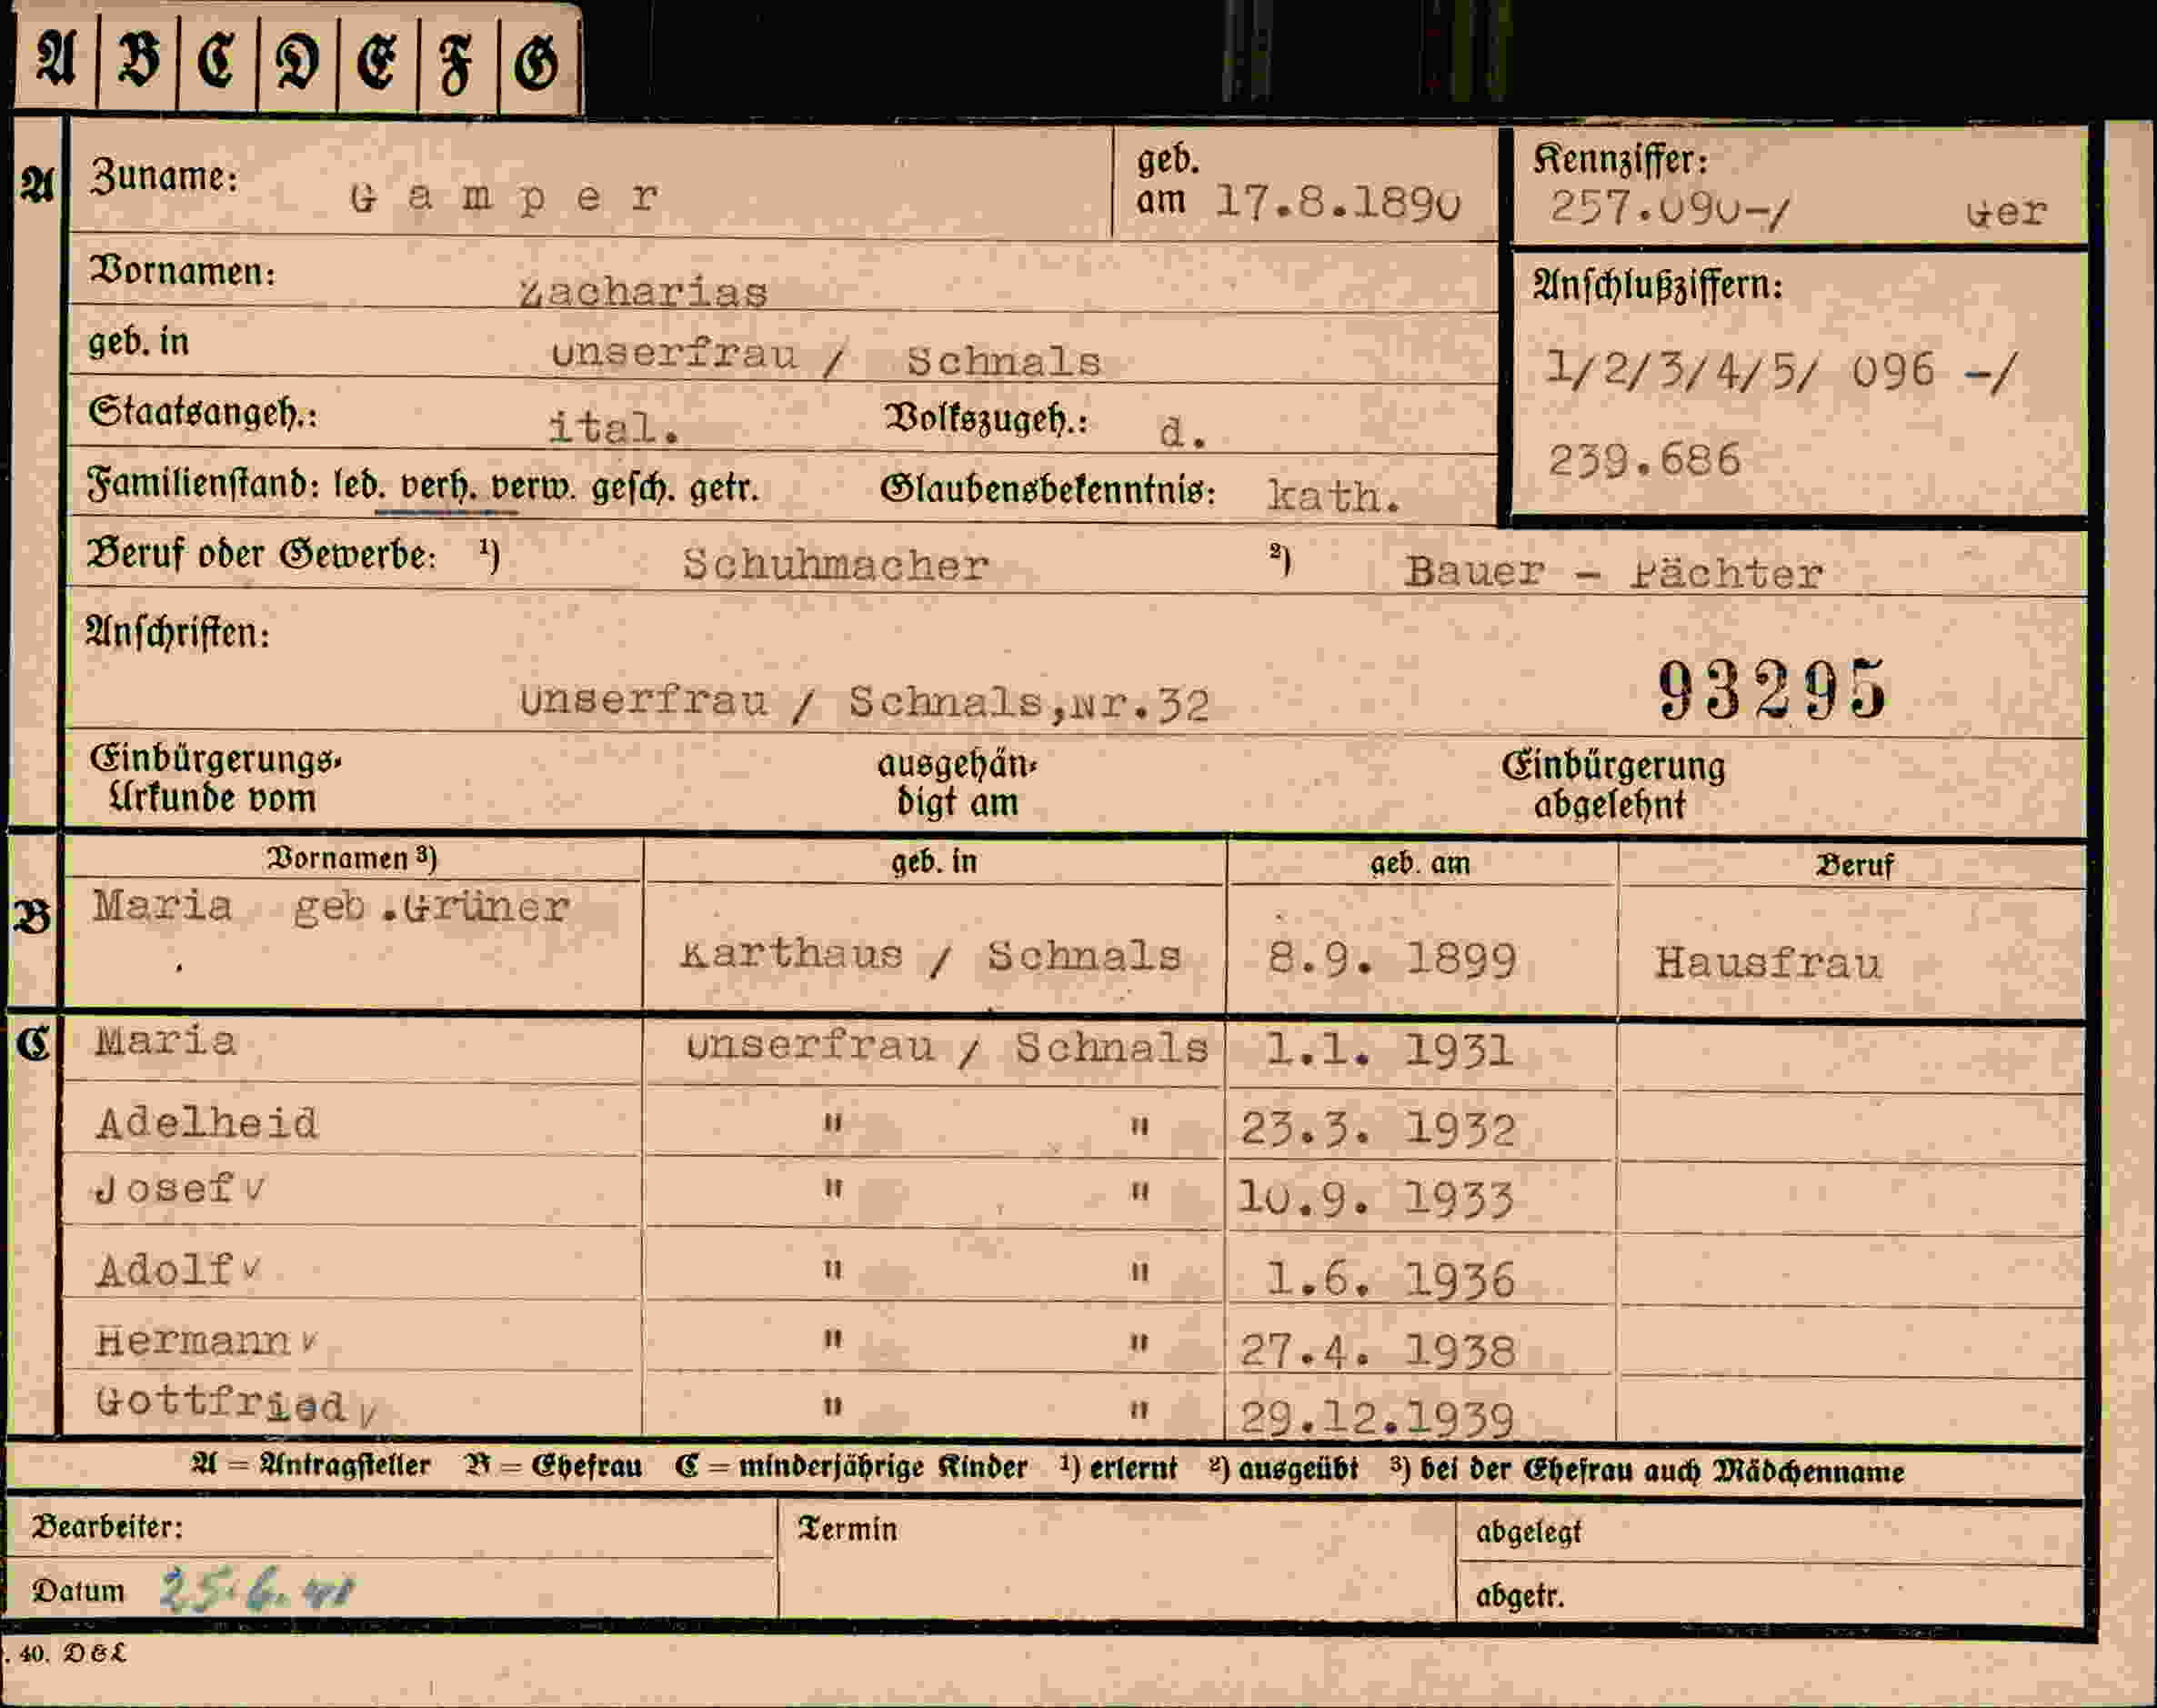 A B C D E F G
A Zuname: Gamper geb. am 17.8.1890 Kennziffer: 257.090-/ Ger
Vornamen: Zacharias Anschlußziffern:
geb. in Unserfrau / Schnals 1/2/3/4/5/ 096 -/
Staatsangeh.: ital. Volkszugeh.: d. 239.686
Familienstand: led. verh. verw. gesch. getr. Glaubensbekenntnis: kath.
Beruf oder Gewerbe: ¹) Schuhmacher ²) Bauer - Pächter
Anschriften:
Unserfrau / Schnals,Nr.32 93295
Einbürgerungs-Urkunde vom ausgehändigt am Einbürgerung abgelehnt
Vornamen ³) geb. in geb. am Beruf
B Maria geb.Grüner
Karthaus / Schnals 8.9. 1899 Hausfrau
C Maria Unserfrau / Schnals 1.1. 1931
Adelheid " " 23.3. 1932
Josef v " " 10.9. 1933
Adolf v " " 1.6. 1936
Hermann v " " 27.4. 1938
Gottfried v " " 29.12.1939
A = Antragsteller B = Ehefrau C = minderjährige Kinder ¹) erlernt ²) ausgeübt ³) bei der Ehefrau auch Mädchenname
Bearbeiter: Termin abgelegt
Datum 25.6.41 abgetr.
. 40. D&L